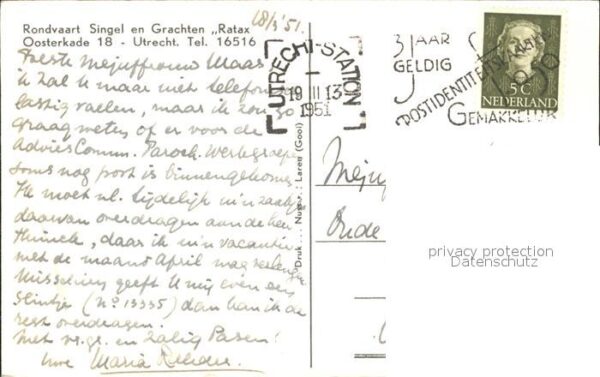 Rondvaart Singel en Grachten „Ratax
Oosterkade 18 - Utrecht. Tel. 16516
18/3 '51.
Beste Mejuffrouw Maas
Ik zal U maar niet telefonisch
lastig vallen, maar ik zou zo
graag weten of er voor de
Advies Comm. Paroch. Werkgroepen
soms nog post is binnengekomen.
Ik moet nl. tijdelijk m'n zaakje
daarvan overdragen aan de heer
daar ik m'n vacantie
met de maand April mag verlengen
Misschien geeft U mij even een
seintje (No 13335) dan kan ik de
rest overdragen.
Met vr. gr. en Zalig Pasen!
Uwe Maria
Druk . Nusser. : Laren (Gooi)
UTRECHT-STATION
19 III 13
1951
3 JAAR
GELDIG
POSTIDENTITEITSKAART
GEMAKKELIJK
5 C
NEDERLAND
Mejuf
Oude
privacy protection
Datenschutz